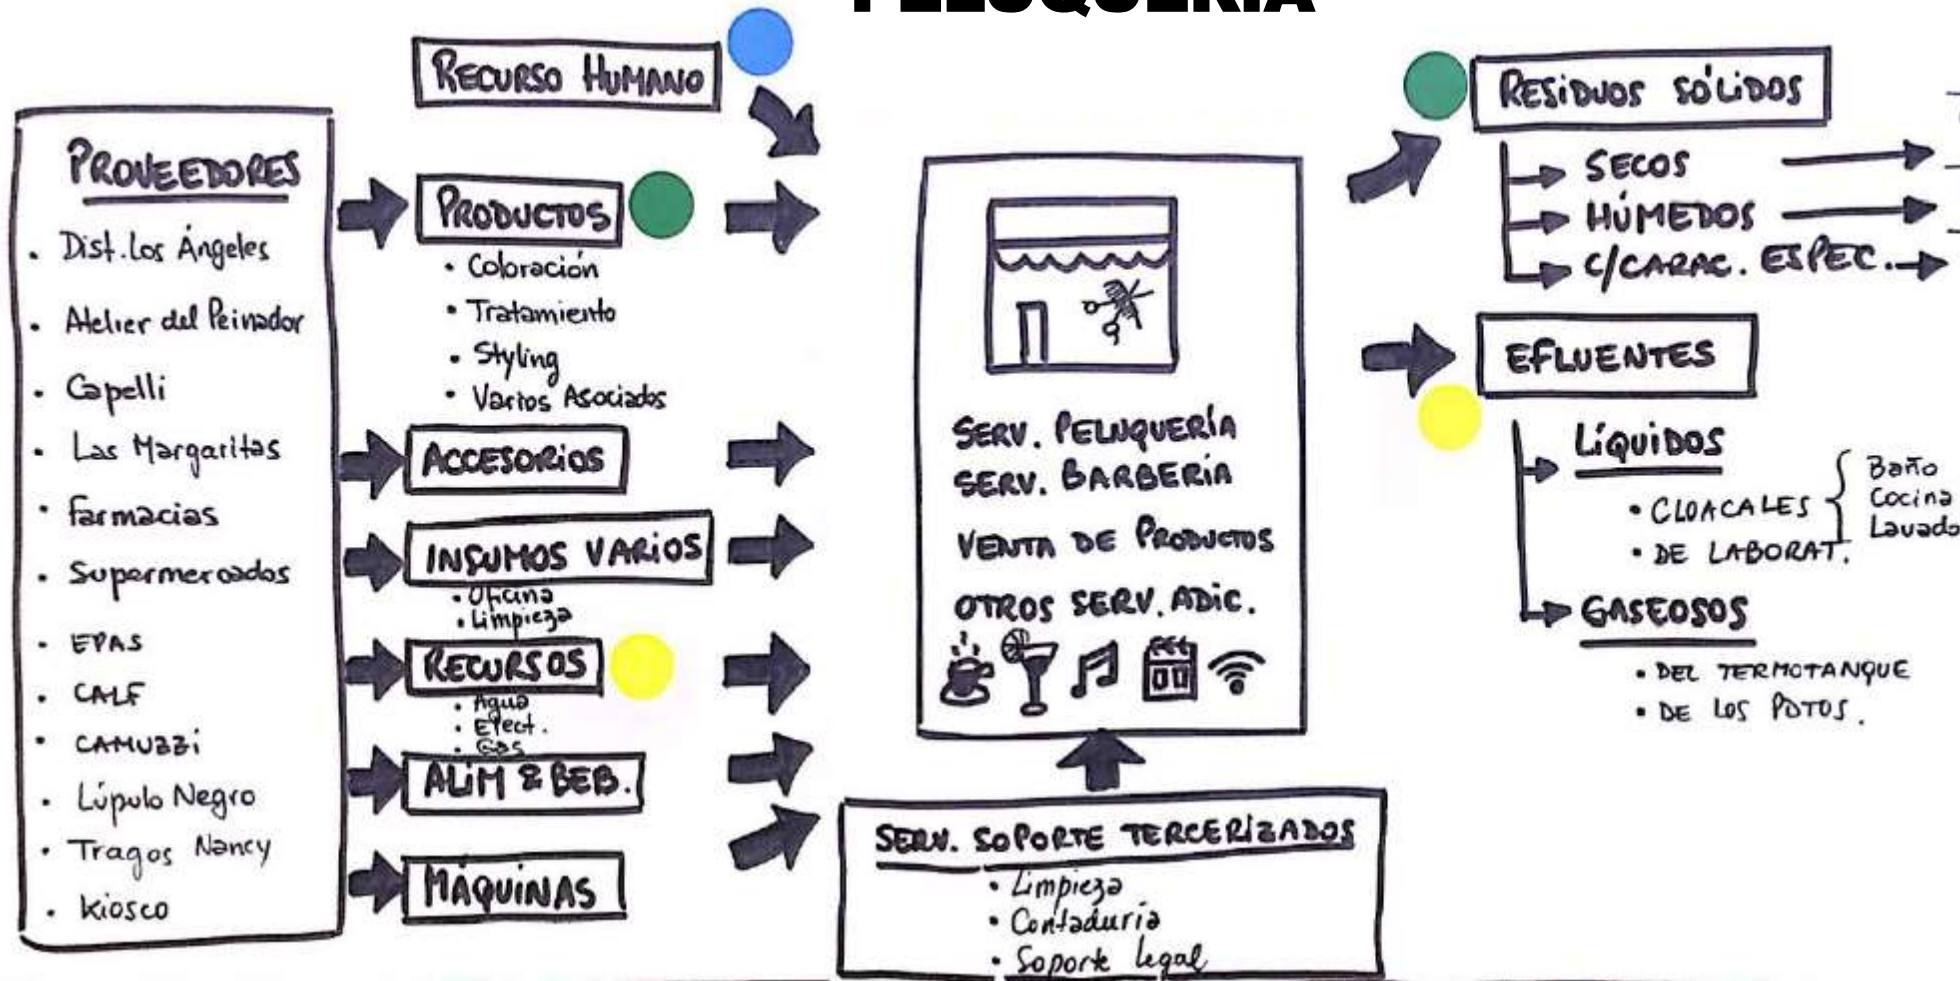 PELUQUERÍA
RECURSO HUMANO
PROVEEDORES
• Dist. Los Ángeles
• Atelier del Peinador
• Capelli
• Las Margaritas
• Farmacias
• Supermercados
• EPAS
• CALF
• CAMUZZI
• Lúpulo Negro
• Tragos Nancy
• Kiosco
PRODUCTOS
• Coloración
• Tratamiento
• Styling
• Varios Asociados
ACCESORIOS
INSUMOS VARIOS
• Oficina
• Limpieza
RECURSOS
• Agua
• Elect.
• Gas
ALIM & BEB.
MÁQUINAS
SERV. PELUQUERÍA
SERV. BARBERÍA
VENTA DE PRODUCTOS
OTROS SERV. ADIC.
SERV. SOPORTE TERCERIZADOS
• Limpieza
• Contaduría
• Soporte Legal
RESIDUOS SÓLIDOS
SECOS
HÚMEDOS
C/CARAC. ESPEC.
EFLUENTES
LÍQUIDOS
• CLOACALES
Baño
Cocina
Lavado
• DE LABORAT.
GASEOSOS
• DEL TERMOTANQUE
• DE LOS POTOS.